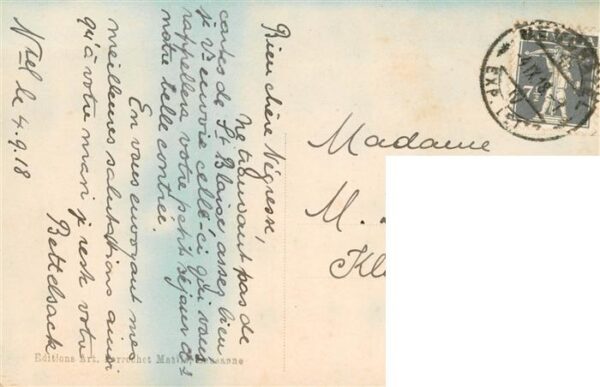 Bien chère Négresse,
Ne trouvant pas de
cartes de St Blaise assez bien
je vs envoie celle-ci qui vous
rappellera votre petit séjour ds
notre belle contrée.
En vous envoyant mes
meilleures salutations ainsi
qu'à votre mari je reste votre
Bettelsack
Ntel le 4.9.18
Madame
M.
Editions Art. Perrochet Lausanne
EXP.